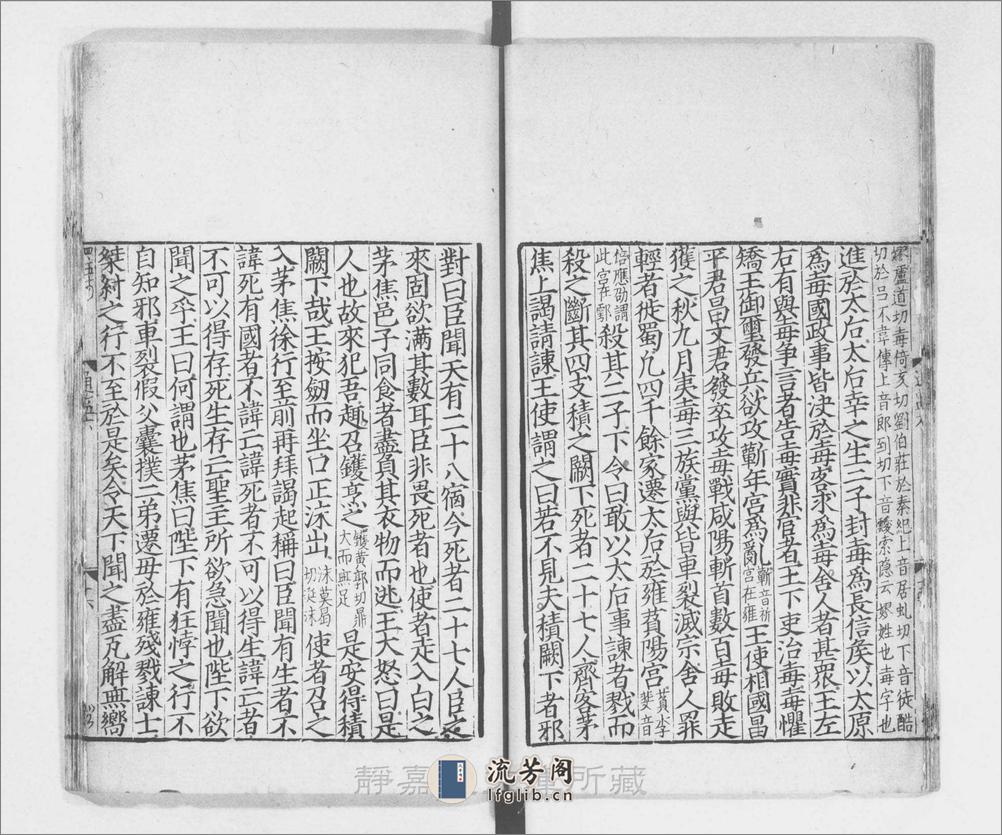 嫪盧道切毐倚亥切劉伯莊於秦紀上音居虬切下音徒酷
切於吕不韋傳上音郎到切下音𡠗索隐云嫪姓也毐字也
進於太后太后幸之生二子封毐爲長信矦以太原
爲毐國政事皆決於毐客求爲毐舍人者甚衆王左
右有與毐爭言者告毐實非宦者王下吏治毐毐懼
矯王御璽發兵欲攻蘄年宫爲亂蘄音祈宫在雍王使相國昌
平君昌文君發卒攻毐戰咸陽斬首數百毐敗走
獲之秋九月夷毐三族黨與皆車裂滅宗舍人罪
輕者徙蜀凡四千餘家遷太后於雍萯陽宫萯李斐音
倍應劭謂此宫在鄠殺其二子下令曰敢以太后事諫者戮而
殺之斷其四支積之闕下死者二十七人齊客茅
焦上謁請諫王使謂之曰若不見夫積闕下者邪
對曰臣聞天有二十八宿今死者二十七人臣之
來固欲滿其數耳臣非畏死者也使者走入白之
茅焦邑子同食者盡負其衣物而逃王大怒曰是
人也故來犯吾趣召鑊烹之鑊黄郭切鼎大而無足是安得積
闕下哉王按劒而坐口正沫出沫莫曷切涎沫使者召之
入茅焦徐行至前再拜謁起稱曰臣聞有生者不
諱死有國者不諱亡諱死者不可以得生諱亡者
不可以得存死生存亡聖主所欲急聞也陛下欲
聞之乎王曰何謂也茅焦曰陛下有狂悖之行不
自知邪車裂假父囊撲二弟遷母於雍殘戮諫士
桀紂之行不至於是矣令天下聞之盡瓦解無嚮
靜嘉
所藏
流芳阁
lfglib.cn